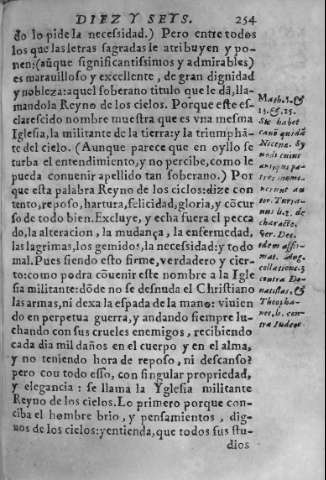 DIEZ Y SEYS. 254
do lo pide la necessidad.) Pero entre todos
los que las letras sagradas le atribuyen y po-
nen: (aũque significantissimos y admirables)
es marauilloso y excellente, de gran dignidad
y nobleza: aquel soberano titulo que le dã, lla-
mandola Reyno de los cielos. Porque este es-
clarescido nombre muestra que es vna mesma
Iglesia, la militante de la tierra: y la triumphã-
te del cielo. (Aunque parece que en oyllo se
turba el entendimiento, y no percibe, como le
pueda conuenir apellido tan soberano.) Por
que esta palabra Reyno de los cielos: dize con
tento, reposo, hartura, felicidad, gloria, y cõcur
so de todo bien. Excluye, y echa fuera el pecca
do, la alteracion, la mudança, la enfermedad,
las lagrimas, los gemidos, la necessidad: y todo
mal. Pues siendo esto firme, verdadero y cier-
to: como podra cõuenir este nombre a la Igle
sia militante: dõde no se desnuda el Christiano
las armas, ni dexa la espada de la mano: viuien
do en perpetua guerra, y andando siempre lu-
chando con sus crueles enemigos, recibiendo
cada dia mil daños en el cuerpo y en el alma,
y no teniendo hora de reposo, ni descanso?
pero con todo esso, con singular propriedad,
y elegancia: se llama la Yglesia militante
Reyno de los cielos. Lo primero porque con-
ciba el hombre brio, y pensamientos, dig-
nos de los cielos: y entienda, que todos sus stu-
dios
Math. 3. &
13. & 25.
Sic habet
canõ quidã
Nicena. sy
nodi cuius
antiquí pa-
tres
tor. Turria-
nus. li. 2. de
characte.
Ser. Dei.
idem affir-
mat. Aug.
collatione. 3
contra Do-
natistas. &
Theopha-
nes, li. con-
tra Iudeos